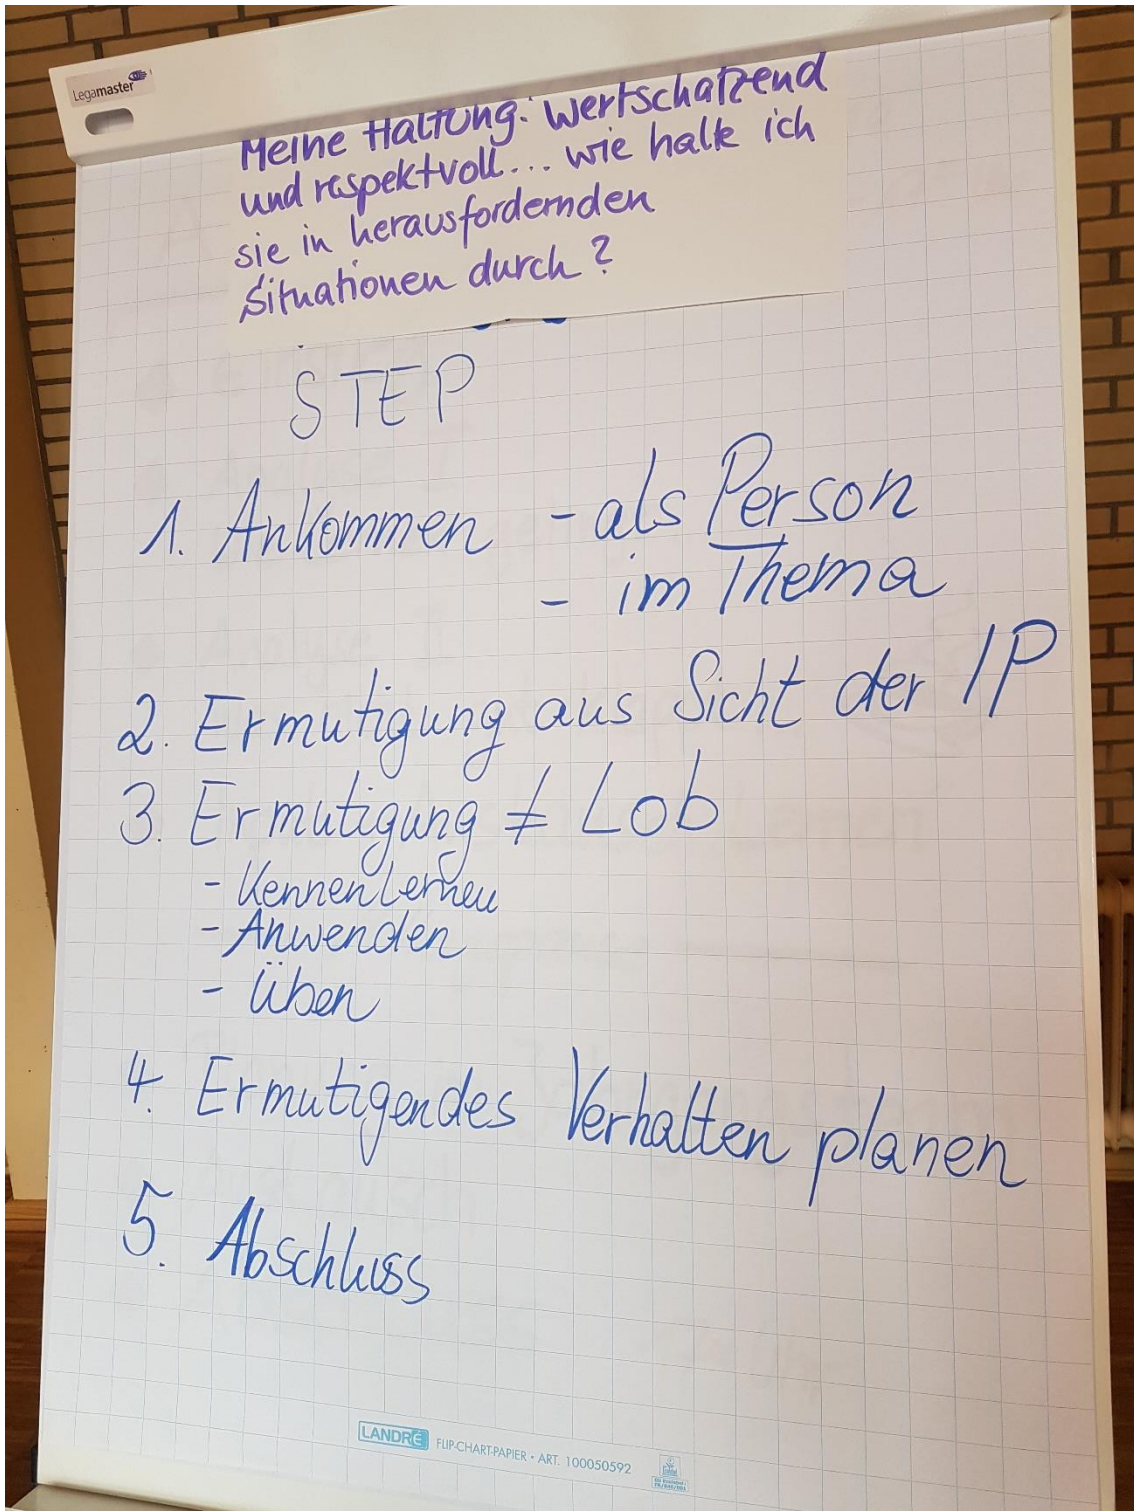 Legamaster
Meine Haltung: Wertschätzend
und respektvoll... wie halte ich
sie in herausfordernden
Situationen durch?
STEP
1. Ankommen - als Person
- im Thema
2. Ermutigung aus Sicht der IP
3. Ermutigung ≠ Lob
- Kennenlernen
- Anwenden
- Üben
4. Ermutigendes Verhalten planen
5. Abschluss
LANDRÉ FLIP-CHART-PAPIER • ART. 100050592